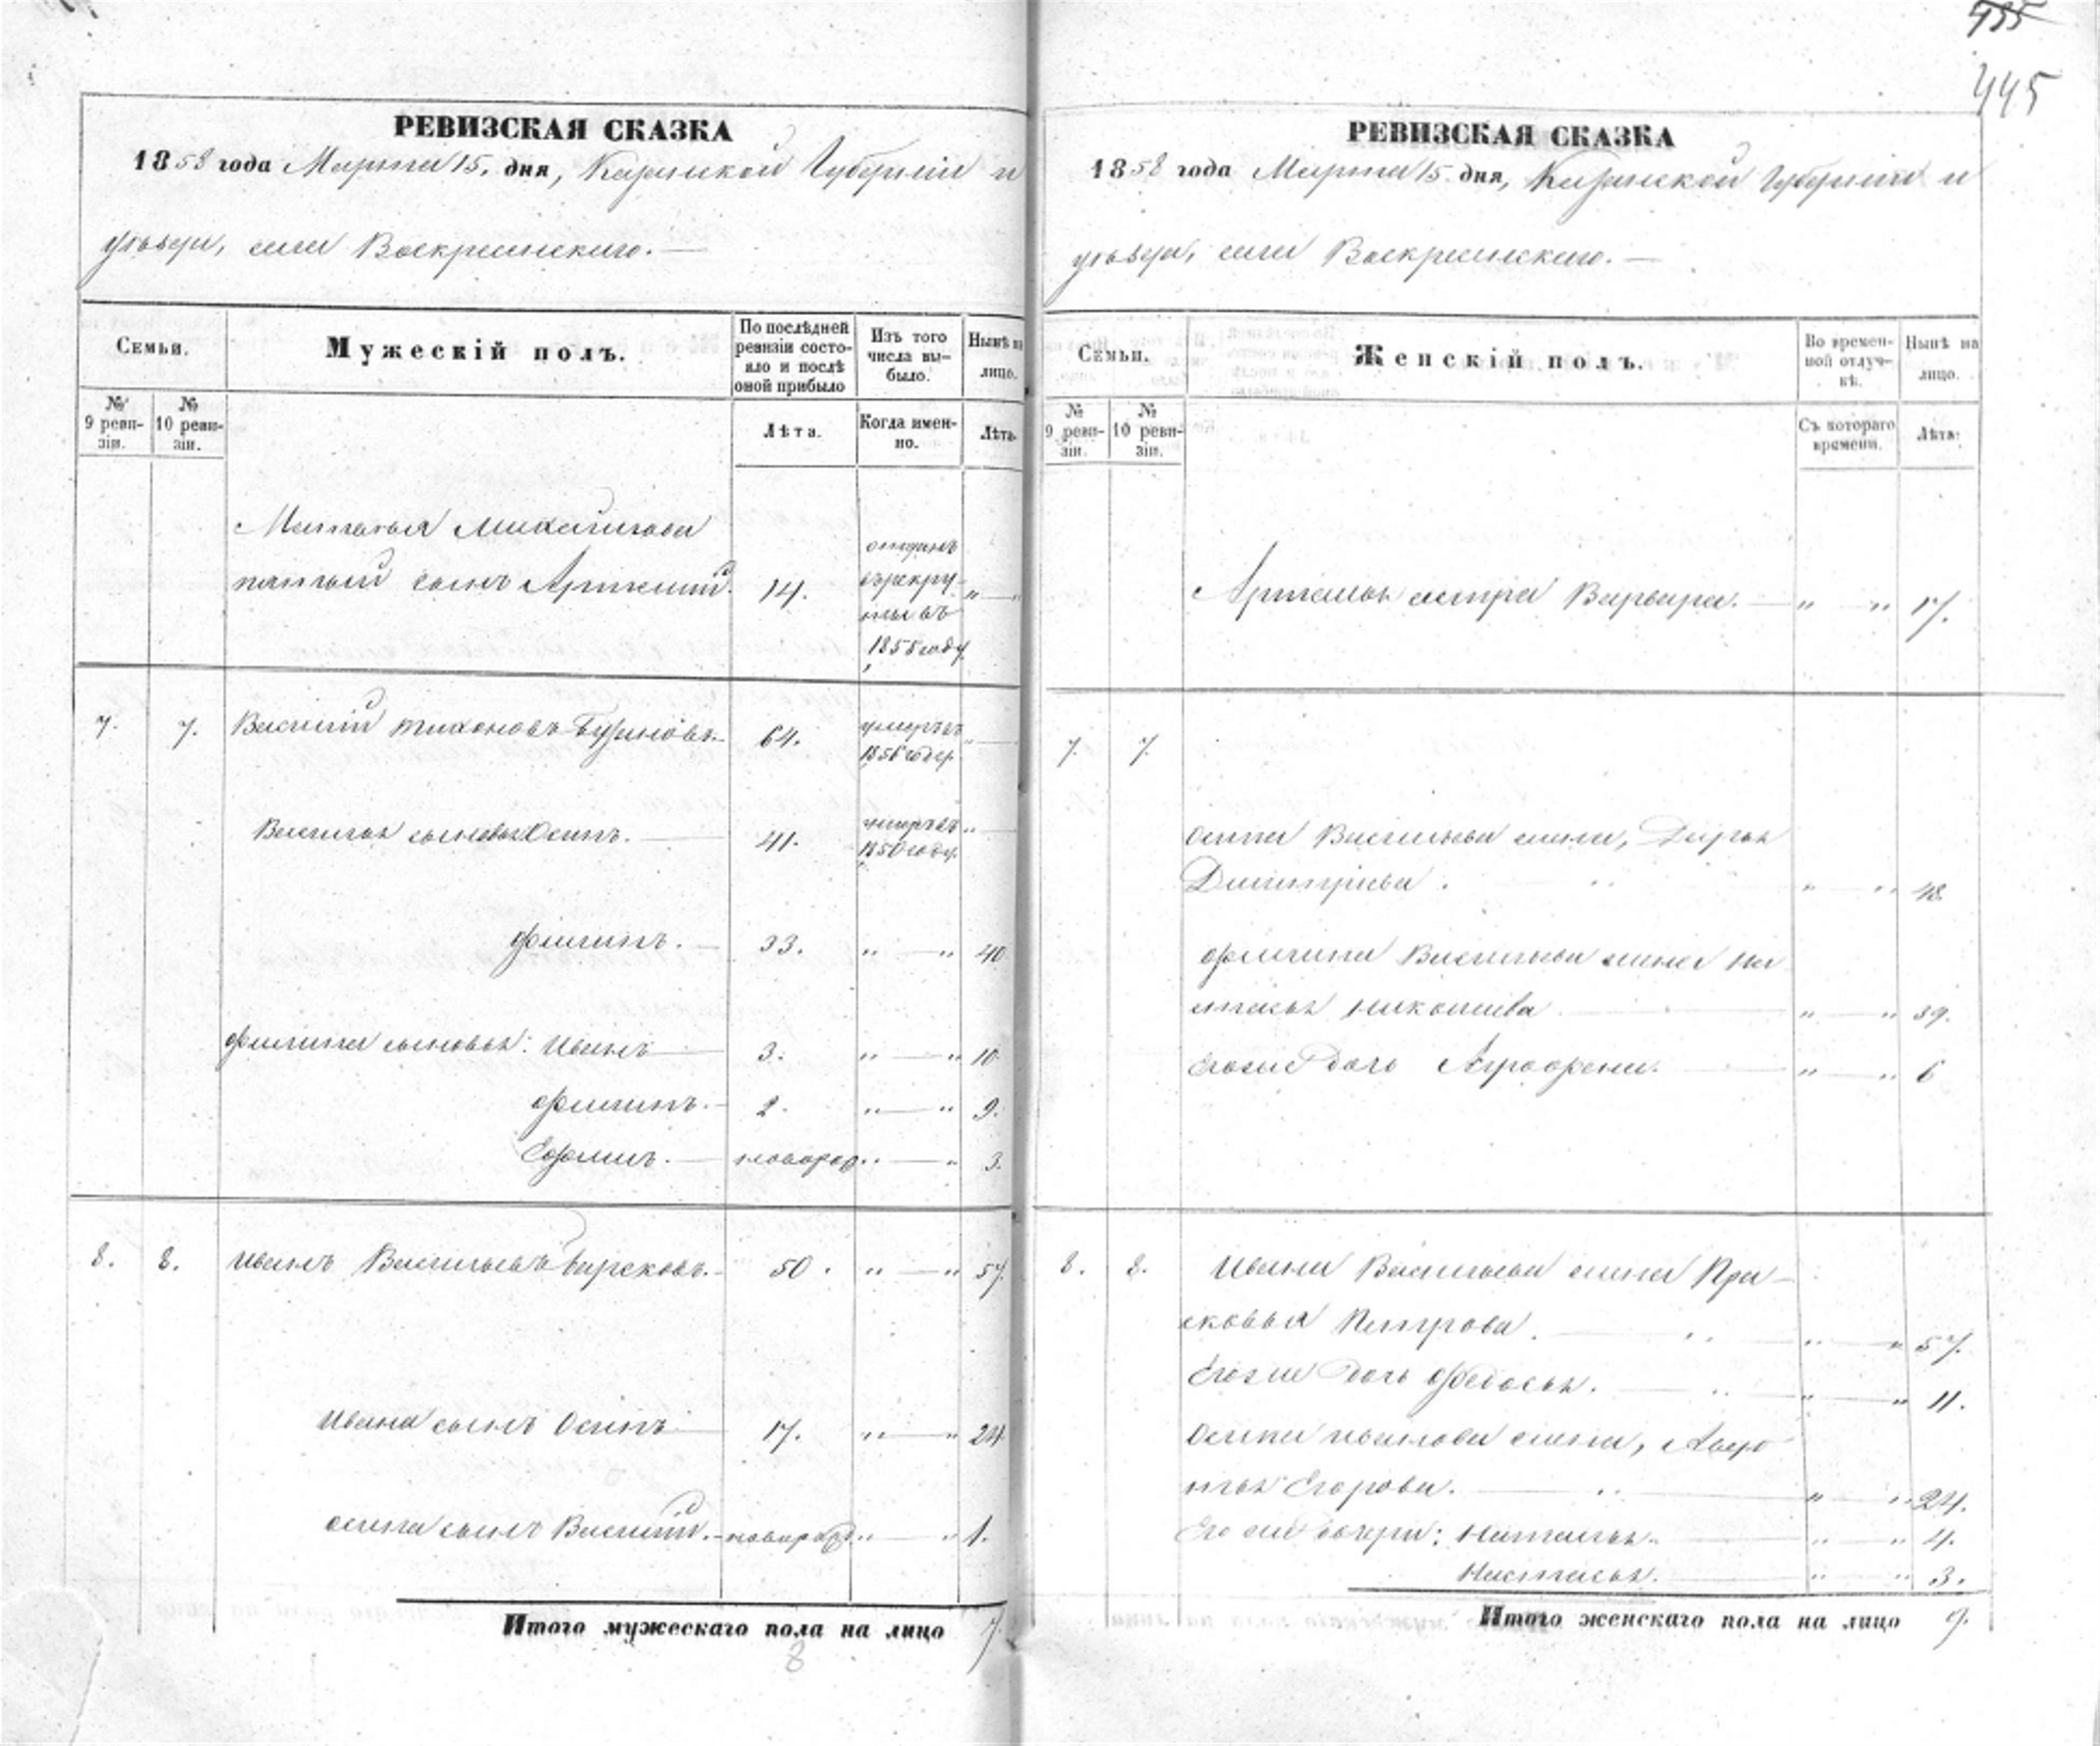 435
445
РЕВИЗСКАЯ СКАЗКА
1858 года Марта 15. дня, Казанской Губерніи и
уѣзда, села Воскресенскаго. —
Семьи.
Мужескій полъ.
По послѣдней ревизіи состояло и послѣ оной прибыло
Изъ того числа выбыло.
Нынѣ на лицо.
№ 9 ревизіи.
№ 10 ревизіи.
Лѣта.
Когда именно.
Лѣта.
Матвѣя Михайлова
пятый сынъ Артемій. 14. отданъ въ рекруты въ 1855 году " — "
7. 7. Василій Тихоновъ 64. умеръ въ 1856 году " —
Василья сыновья Осипъ. — 41. умеръ въ 1850 году. " —
Филипъ. — 33. " — " 40
Филипа сыновья: Иванъ — 3. " — " 10.
Филипъ. — 2. " — " 9.
Ефимъ. — новорож " — " 3.
8. 8. Иванъ Васильевъ 50. " — " 57.
Ивана сынъ Осипъ — 17. " — " 24
Осипа сынъ Василій. — новорож " — " 1.
Итого мужескаго пола на лицо 7.
8
РЕВИЗСКАЯ СКАЗКА
1858 года Марта 15 дня, Казанской Губерніи и
уѣзда, села Воскресенскаго. —
Семьи.
Женскій полъ.
Во временной отлучкѣ.
Нынѣ на лицо.
№ 9 ревизіи.
№ 10 ревизіи.
Съ котораго времени.
Лѣта.
Артемья сестра Варвара. — " — " 17.
7. 7.
Осипа Васильева жена, Дарья
Дмитріева. " — " 48.
Филипа Васильева жена На
стасья Николаева — " — " 39.
Егоже дочь Аграфена. — " — " 6
8. 8. Ивана Васильева жена Пра-
сковья Петрова. — " — " 57.
Егоже дочь Федосья. — " — " 11.
Осипа Иванова жена, Авдо
тья Егорова. — " — " 24.
Его же дочери: Наталья. — " — " 4.
Настасья. — " — " 3.
Итого женскаго пола на лицо 9.